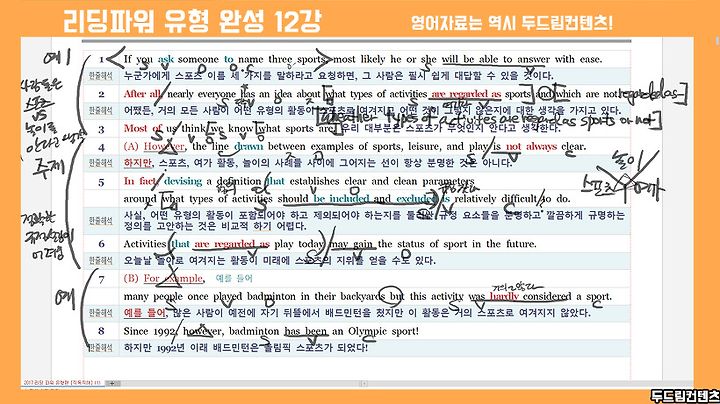 리딩파워 유형 완성 12강
영어자료는 역시 두드림컨텐츠!
예1
1 If you ask someone to name three sports, most likely he or she will be able to answer with ease.
한줄해석 누군가에게 스포츠 이름 세 가지를 말하라고 요청하면, 그 사람은 필시 쉽게 대답할 수 있을 것이다.
2 After all, nearly everyone has an idea about what types of activities are regarded as sports and which are not
한줄해석 어쨌든, 거의 모든 사람이 어떤 유형의 활동이 스포츠로 여겨지고 어떤 것이 그렇지 않은지에 대한 생각을 가지고 있다.
3 Most of us think we know what sports are. 우리 대부분은 스포츠가 무엇인지 안다고 생각한다.
주제
4 (A) However, the line drawn between examples of sports, leisure, and play is not always clear.
한줄해석 하지만, 스포츠, 여가 활동, 놀이의 사례들 사이에 그어지는 선이 항상 분명한 것은 아니다.
놀이
스포츠
여가
5 In fact, devising a definition that establishes clear and clean parameters
around what types of activities should be included and excluded is relatively difficult to do.
한줄해석 사실, 어떤 유형의 활동이 포함되어야 하고 제외되어야 하는지를 둘러싼 규정 요소들을 분명하고 깔끔하게 규명하는
정의를 고안하는 것은 비교적 하기 어렵다.
6 Activities that are regarded as play today may gain the status of sport in the future.
한줄해석 오늘날 놀이로 여겨지는 활동이 미래에 스포츠의 지위를 얻을 수도 있다.
예
7 (B) For example, 예를 들어
many people once played badminton in their backyards but this activity was hardly considered a sport.
한줄해석 예를 들어, 많은 사람이 예전에 자기 뒤뜰에서 배드민턴을 쳤지만 이 활동은 거의 스포츠로 여겨지지 않았다.
8 Since 1992, however, badminton has been an Olympic sport!
한줄해석 하지만 1992년 이래 배드민턴은 올림픽 스포츠가 되었다!
두드림컨텐츠